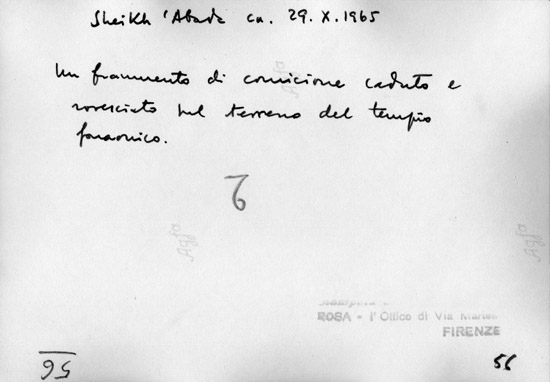 Sheikh 'Abada ca. 29.X.1965
Un frammento di cornicione caduto e
rovesciato nel terreno del tempio
faraonico.
6
Agfa
Agfa
Agfa
ROSA - l'Ottico di Via
FIRENZE
56
56